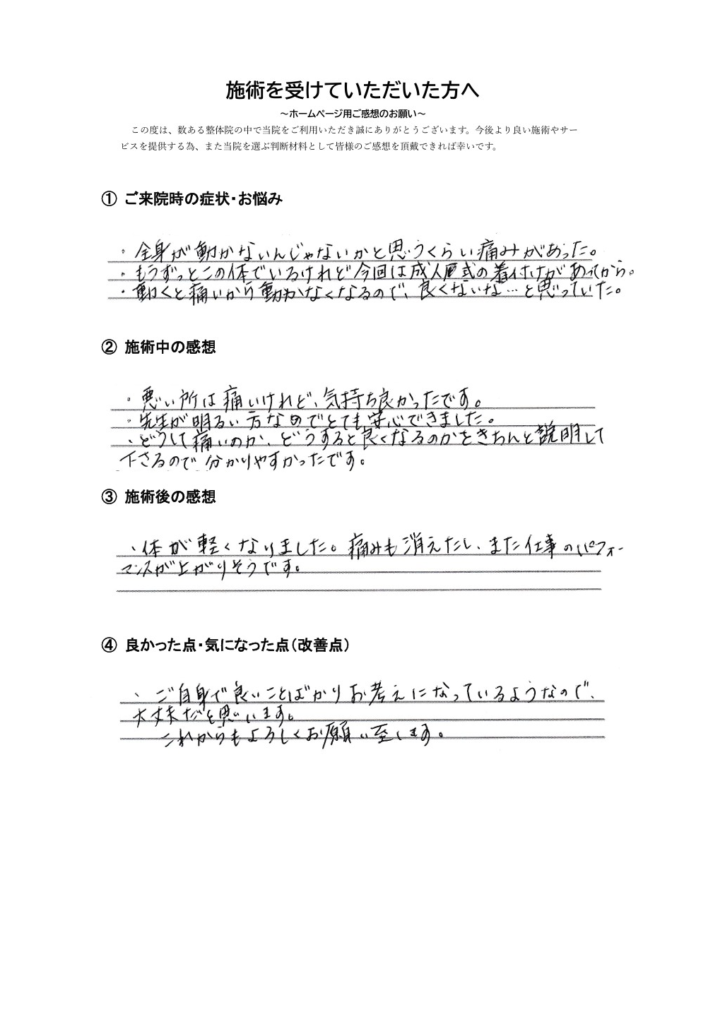 施術を受けていただいた方へ
～ホームページ用ご感想のお願い～
この度は、数ある整体院の中で当院をご利用いただき誠にありがとうございます。今後より良い施術やサー
ビスを提供する為、また当院を選ぶ判断材料として皆様のご感想を頂戴できれば幸いです。
① ご来院時の症状・お悩み
・全身が動かないんじゃないかと思うくらい痛みがあった。
・もうずっとこの体でいるけれど今回は成人式の着付けがあったから。
・動くと痛いから動かなくなるので、良くないな…と思っていた。
② 施術中の感想
・悪い所は痛いけれど、気持ち良かったです。
・先生が明るい方なのでとても安心できました。
・どうして痛いのか、どうすると良くなるのかをきちんと説明して
下さるので分かりやすかったです。
③ 施術後の感想
・体が軽くなりました。痛みも消えたし、また仕事のパフォー
マンスが上がりそうです。
④ 良かった点・気になった点（改善点）
・ご自身で良いことばかりお考えになっているようなので、
大丈夫だと思います。
これからもよろしくお願い至します。